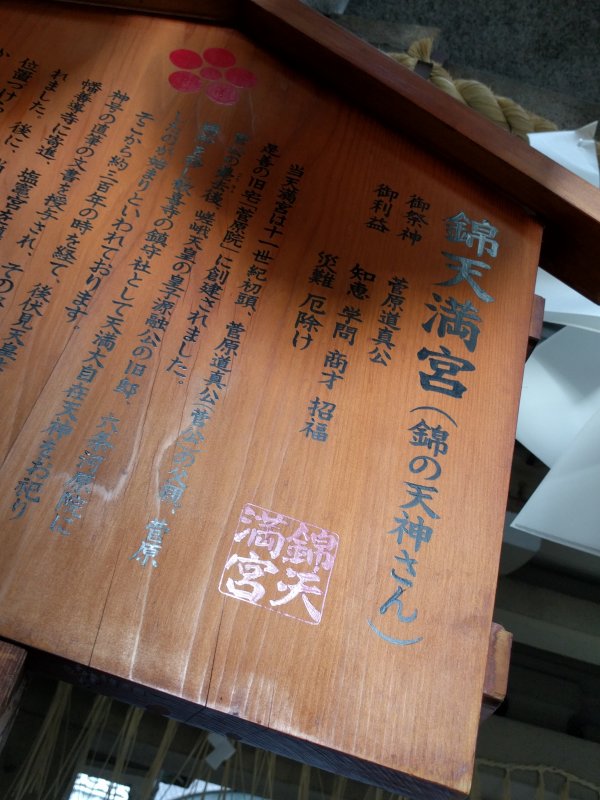 錦天満宮(錦の天神さん)
御祭神 菅原道真公
御利益 知恵 学問 商才 招福
災難 厄除け
当天満宮は十一世紀初頭、菅原道真公(菅公)の父親、菅原
是善の旧宅「菅原院」に創建されました。
後 嵯峨天皇の皇子源融公の旧邸、六条河原院に
歓喜寺の鎮守社として天満大自在天神をお祀り
したのが始まりといわれております。
そこから約三百年の時を経て、後伏見天皇
神号の直筆の文書を授与され、
幡善導寺に寄進
れました。後に、塩竈宮を
位置づけ
錦天
満宮